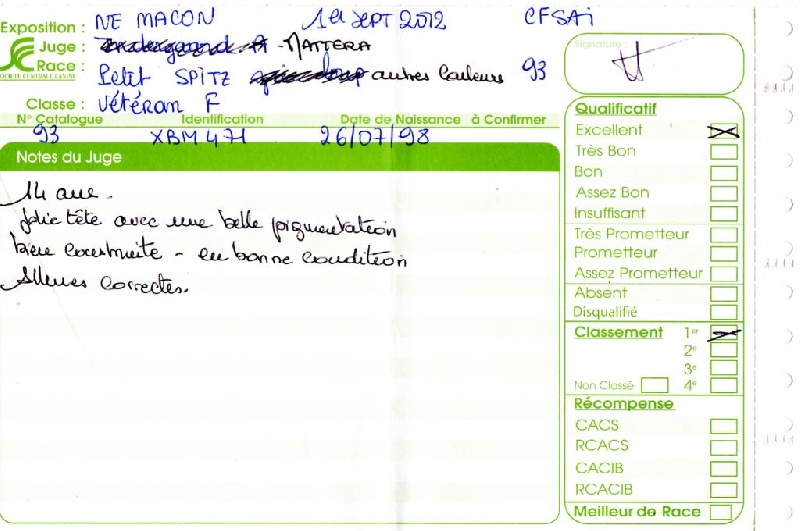 Exposition : NE MACON 1er SEPT 2012 CFSAI
Juge : MATTERA
Race : Petit SPITZ autres Couleurs 93
SOCIETE CENTRALE CANINE
Classe : Vétéran F
N° Catalogue Identification Date de Naissance à Confirmer
93 XBM 471 26/07/98
Notes du Juge
14 ans.
Jolie tête avec une belle pigmentation
bien construite - en bonne condition
Allures correctes.
Signature :
Qualificatif
Excellent
Très Bon
Bon
Assez Bon
Insuffisant
Très Prometteur
Prometteur
Assez Prometteur
Absent
Disqualifié
Classement 1er
2e
3e
Non Classé 4e
Récompense
CACS
RCACS
CACIB
RCACIB
Meilleur de Race